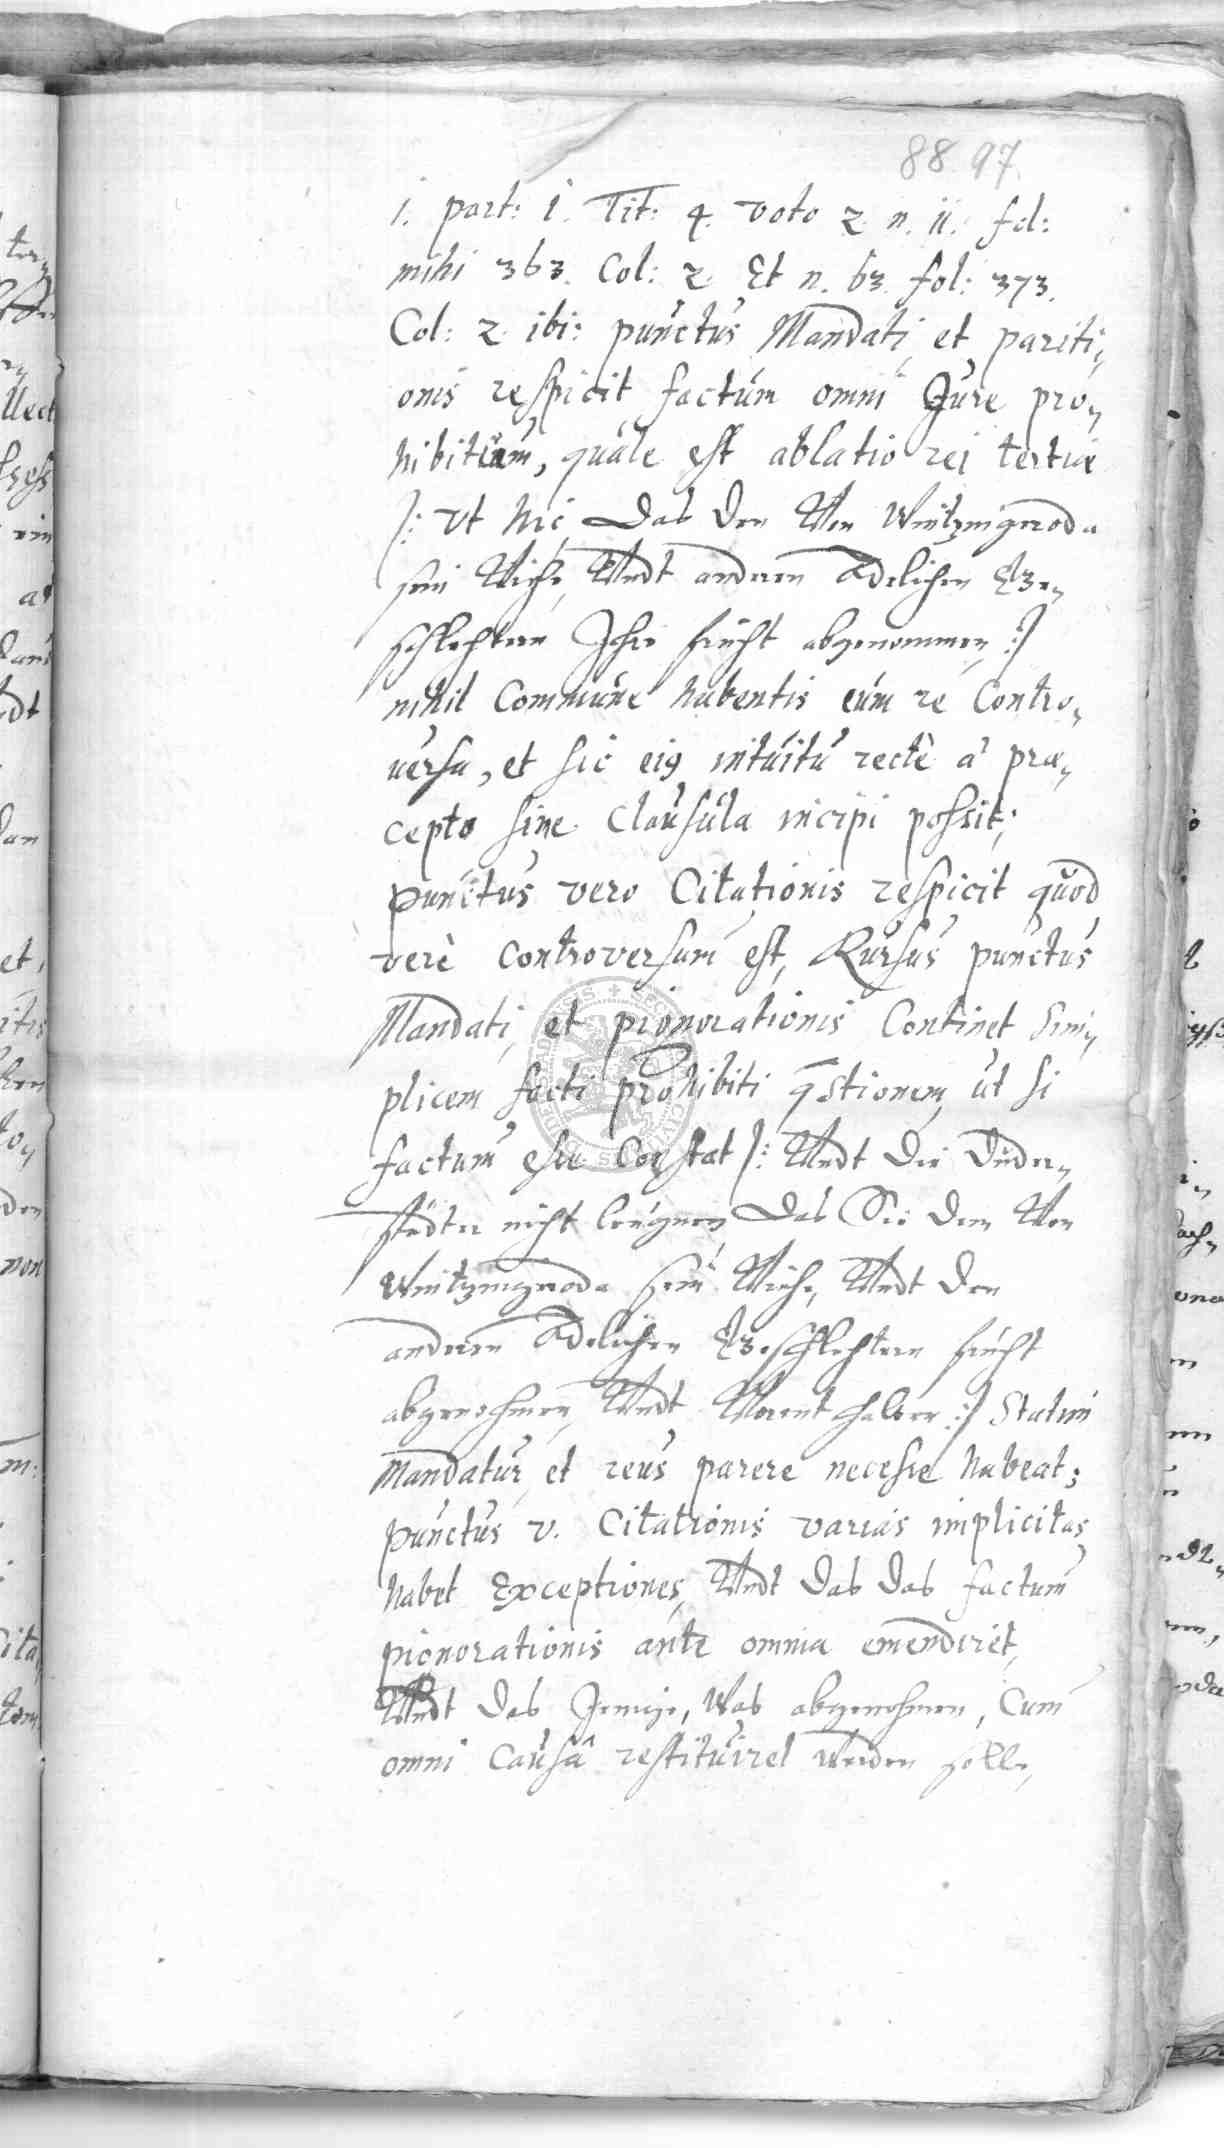 88. 97
1. part: 1. Tit: 4. voto 2. n. 11. fol:
mihi 363. Col: 2. Et n. 63. fol: 373.
Col: 2. ibi: punctus Mandati, et pariti„
onis respicit factum omni Jure pro„
hibitum, quale est ablatio rei tertiæ
/: Vt hic das den Von Wintzingeroda
sein Viehe, Vndt anderen Adelichen Ge„
schlechtern Ihre frücht abgenommen, :/
nihil Commune habentis cum re Contro„
uersa, et sic eius intuitu rectè à præ„
cepto sine Clausula incipi possit;
punctus vero Citationis respicit quod
verè controversum est, Rursus punctus
Mandati, et pignorationis Continet sim„
plicem facti prohibiti qstionem, ut si
factum esse Constat /: Vndt die Duder„
städter nicht leugnen, das Sie dem Von
Wintzingeroda sein Viehe, Vndt den
anderen Adelichen Geschlechtern frücht
abgenohmen, Vndt Vorenthalten :/ Statim
Mandatur, et reus parere necesse habeat;
punctus v. Citationis varias implicitas
habet Exceptiones, Vndt das das factum
pignorationis ante omnia emendiret,
Vndt das Jenige, Was abgenohmen, Cum
omni Causâ restituiret werden solle,